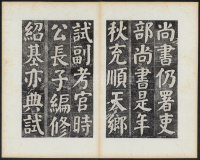 尚書仍署吏
部尚書是年
秋充順天鄉
試副考官時
公長子編修
紹基亦典試